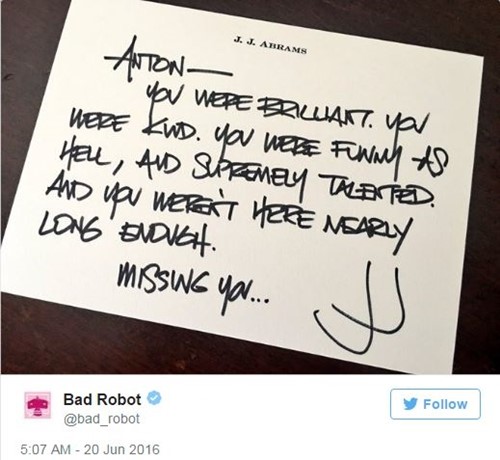 J. J. ABRAMS
ANTON—
YOU WERE BRILLIANT. YOU
WERE KIND. YOU WERE FUNNY AS
HELL, AND SUPREMELY TALENTED.
AND YOU WEREN'T HERE NEARLY
LONG ENOUGH.
MISSING YOU...
JJ
Bad Robot
@bad_robot
Follow
5:07 AM - 20 Jun 2016